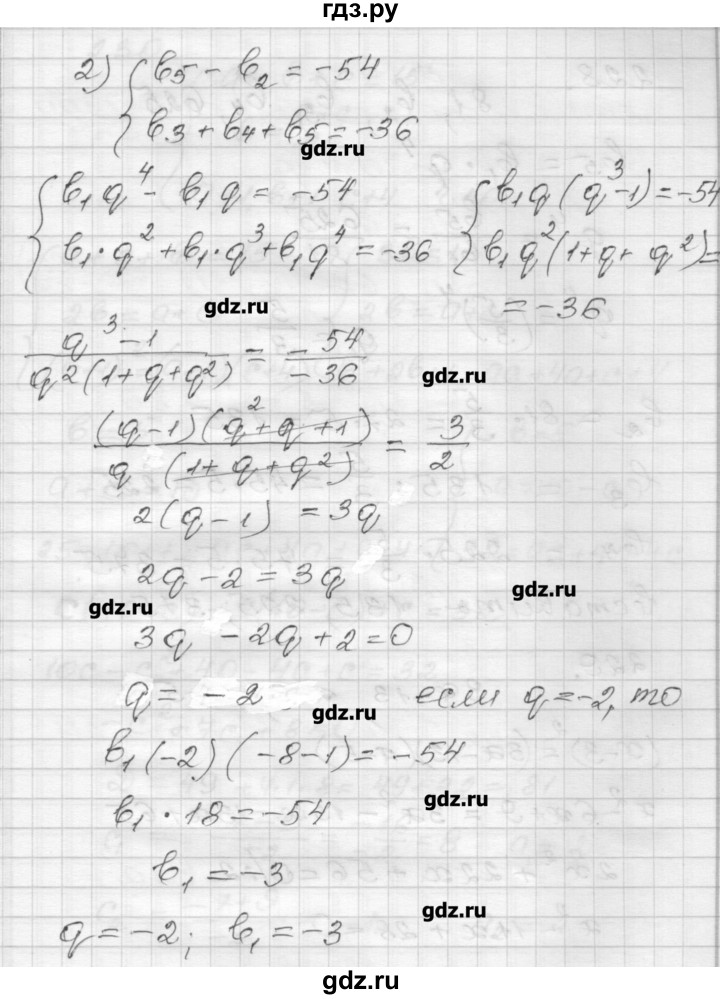 гдз.ру
2) { b₅ − b₂ = −54
b₃ + b₄ + b₅ = −36
gdz.ru
{ b₁q⁴ − b₁q = −54 { b₁q(q³−1) = −54
b₁·q² + b₁·q³ + b₁q⁴ = −36 b₁q²(1+q+q²) =
= −36
gdz.ru
(q³−1)/(q2(1+q+q²)) = −54/−36
gdz.ru
((q−1)(q²+q+1))/(q(1+q+q²)) = 3/2
2(q−1) = 3q
2q − 2 = 3q
gdz.ru
gdz.ru
3q − 2q + 2 = 0
q = −2 если q = −2, то
gdz.ru
b₁(−2)(−8−1) = −54
gdz.ru
b₁ · 18 = −54
b₁ = −3
gdz.ru
q = −2; b₁ = −3
gdz.ru